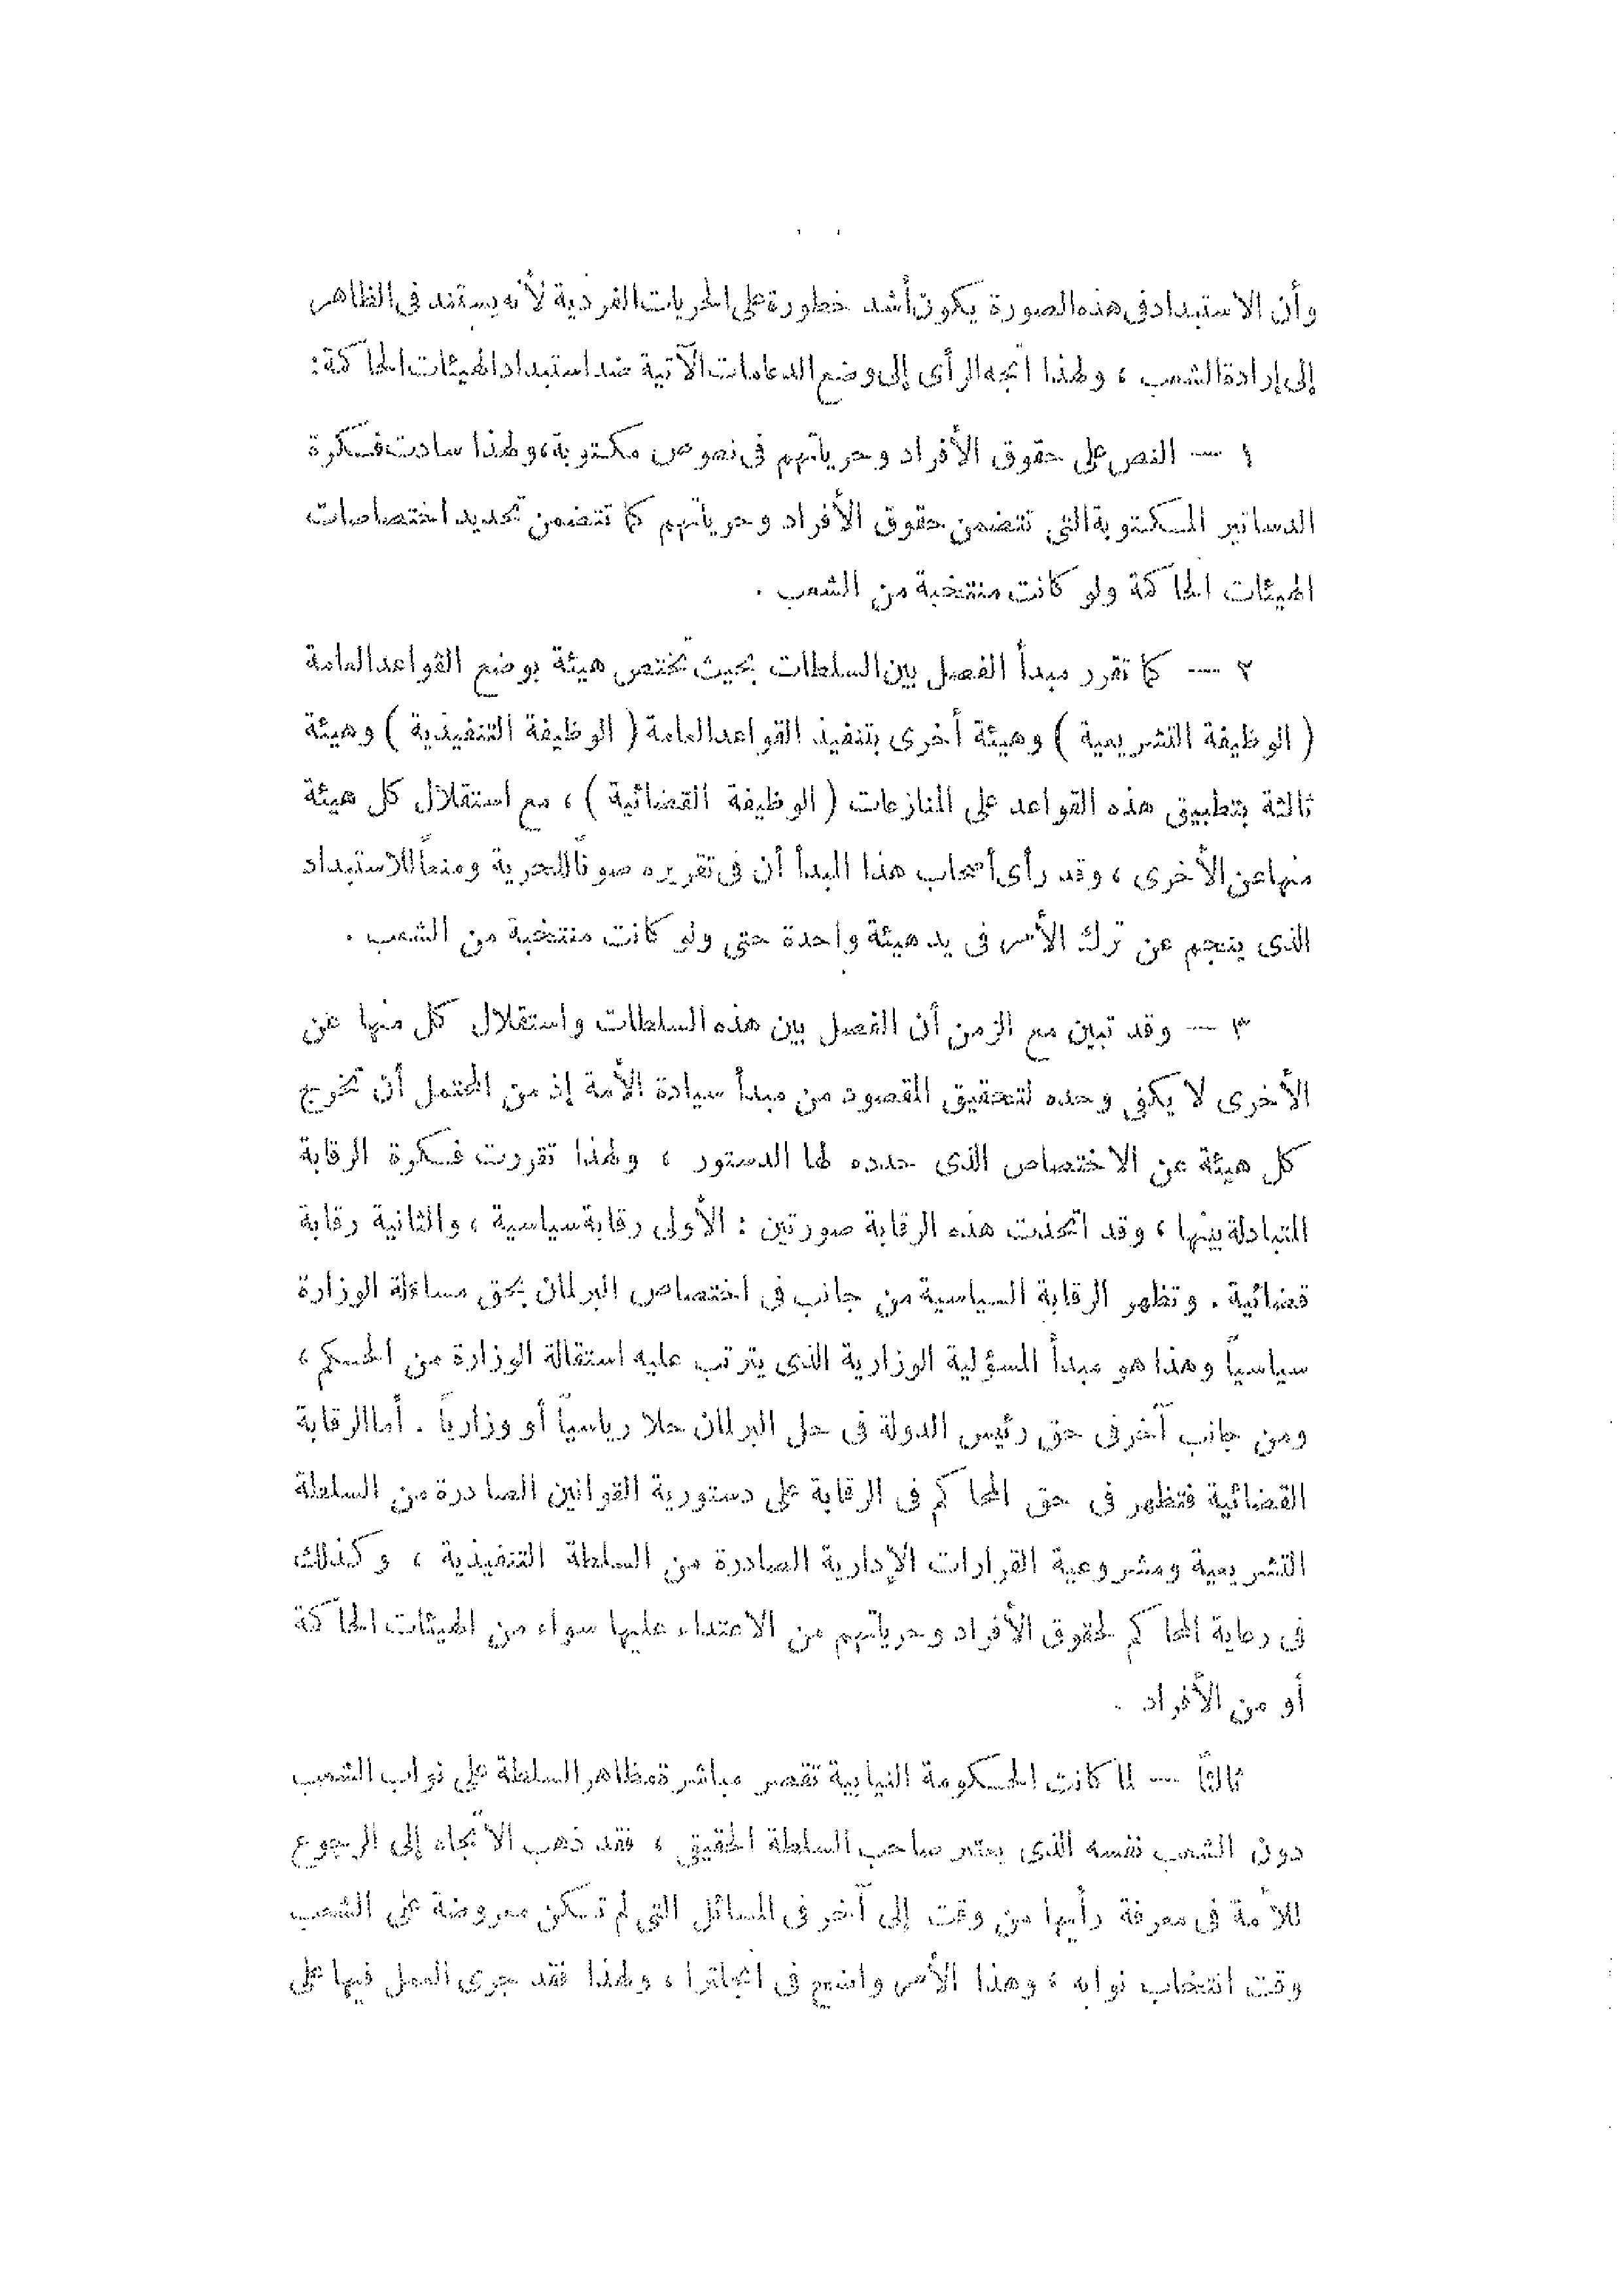 وأن الاستبداد فى هذه الصورة يكون أشد خطورة على الحريات الفردية لأنه يستند فى الظاهر
إلى إرادة الشعب ، ولهذا اتجه الرأى إلى وضع الدعامات الآتية ضد استبداد الهيئات الحاكمة :
١ — النص على حقوق الأفراد وحرياتهم فى نصوص مكتوبة ، ولهذا سادت فكرة
الدساتير المكتوبة التى تتضمن حقوق الأفراد وحرياتهم كما تتضمن تحديد اختصاصات
الهيئات الحاكمة ولو كانت منتخبة من الشعب .
٢ — كما تقرر مبدأ الفصل بين السلطات بحيث تختص هيئة بوضع القواعد العامة
( الوظيفة التشريعية ) وهيئة أخرى بتنفيذ القواعد العامة ( الوظيفة التنفيذية ) وهيئة
ثالثة بتطبيق هذه القواعد على المنازعات ( الوظيفة القضائية ) ، مع استقلال كل هيئة
منها عن الأخرى ، وقد رأى أصحاب هذا المبدأ أن فى تقريره صوناً للحرية ومنعاً للاستبداد
الذى ينجم عن ترك الأمر فى يد هيئة واحدة حتى ولو كانت منتخبة من الشعب .
٣ — وقد تبين مع الزمن أن الفصل بين هذه السلطات واستقلال كل منها عن
الأخرى لا يكفى وحده لتحقيق المقصود من مبدأ سيادة الأمة إذ من المحتمل أن تخرج
كل هيئة عن الاختصاص الذى حدده لها الدستور ، ولهذا تقررت فكرة الرقابة
المتبادلة بينها ، وقد اتخذت هذه الرقابة صورتين : الأولى رقابة سياسية ، والثانية رقابة
قضائية . وتظهر الرقابة السياسية من جانب فى اختصاص البرلمان بحق مساءلة الوزارة
سياسياً وهذا هو مبدأ المسؤلية الوزارية الذى يترتب عليه استقالة الوزارة من الحكم ،
ومن جانب آخر فى حق رئيس الدولة فى حل البرلمان حلا رياسياً أو وزارياً . أما الرقابة
القضائية فتظهر فى حق المحاكم فى الرقابة على دستورية القوانين الصادرة من السلطة
التشريعية ومشروعية القرارات الإدارية الصادرة من السلطة التنفيذية ، وكذلك
فى رعاية المحاكم لحقوق الأفراد وحرياتهم من الاعتداء عليها سواء من الهيئات الحاكمة
أو من الأفراد .
ثالثاً — لما كانت الحكومة النيابية تقصر مباشرة مظاهر السلطة على نواب الشعب
دون الشعب نفسه الذى يعتبر صاحب السلطة الحقيقى ، فقد ذهب الاتجاه إلى الرجوع
للأمة فى معرفة رأيها من وقت إلى آخر فى المسائل التى لم تكن معروضة على الشعب
وقت انتخاب نوابه ، وهذا الأمر واضح فى انجلترا ، ولهذا فقد جرى العمل فيها على